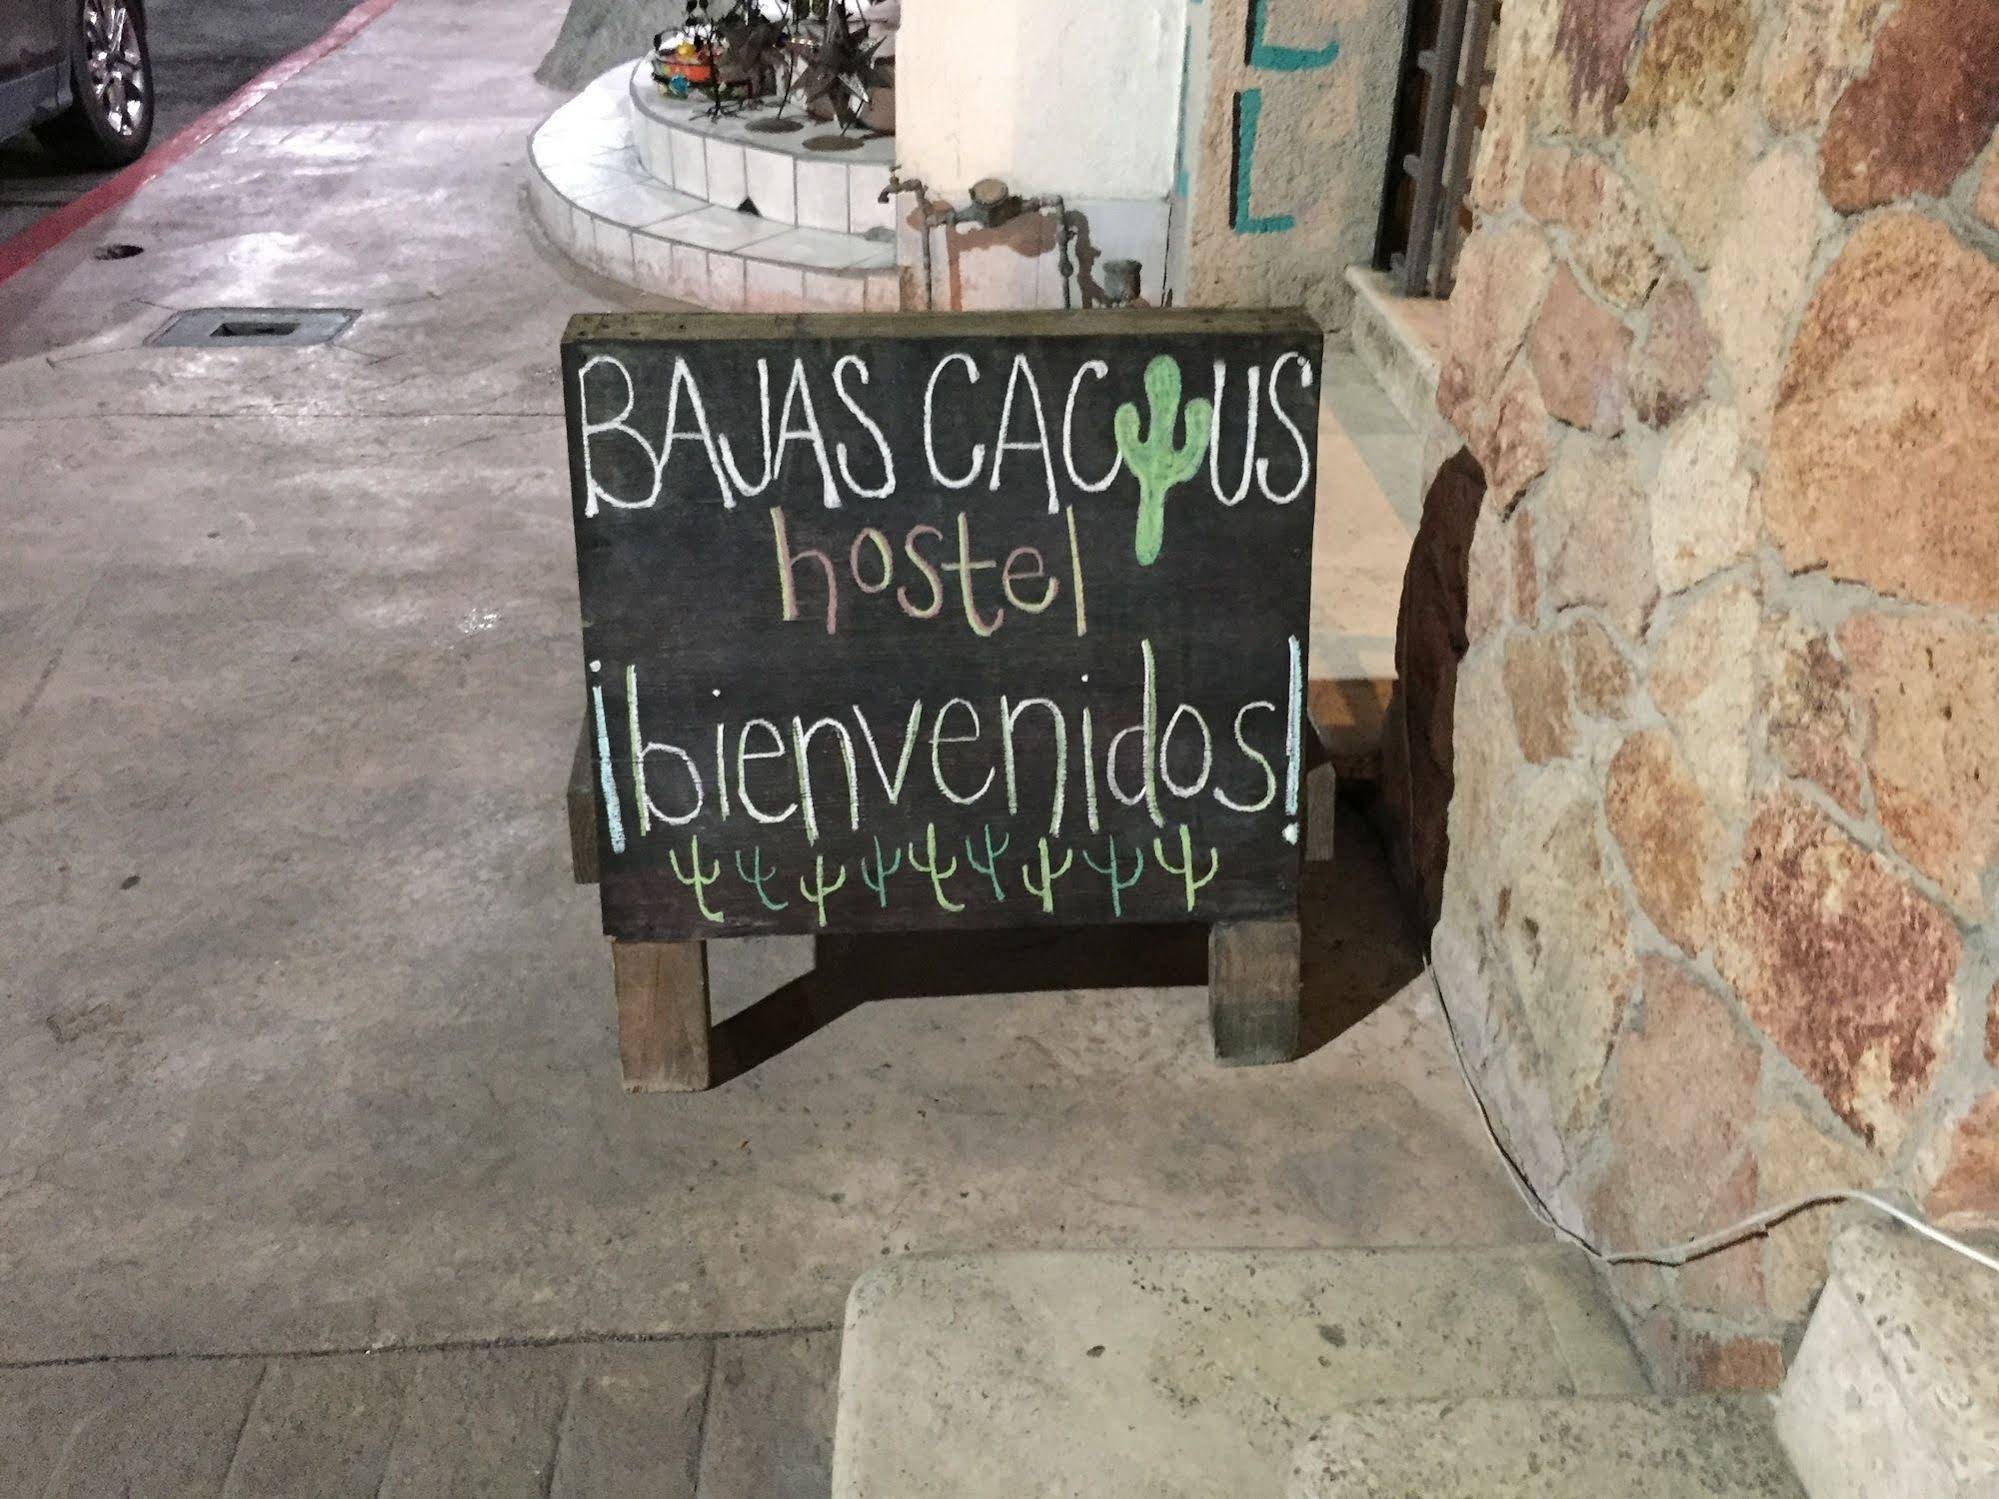 BAJAS CACTUS
hostel
¡bienvenidos!
LL